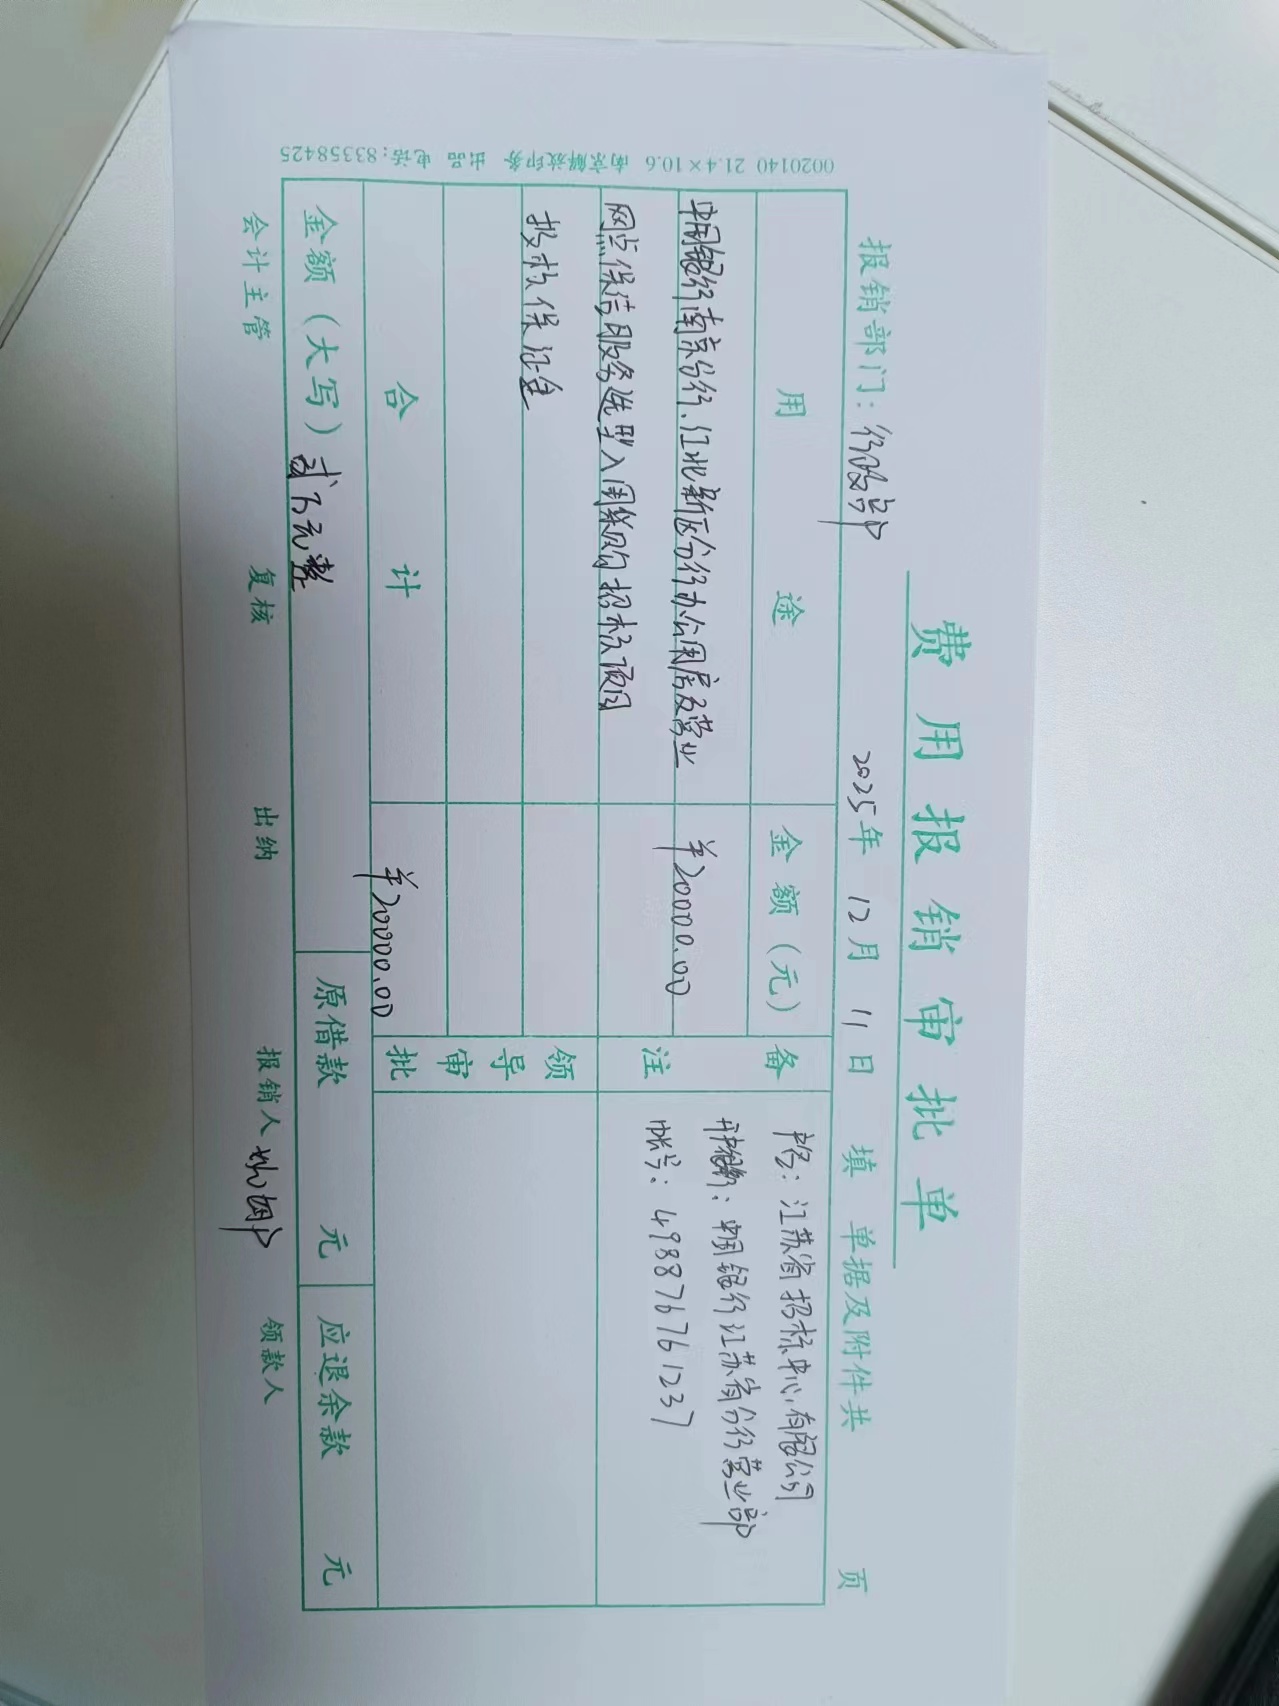 费用报销审批单
报销部门：行政部 2025年 12月 11日 填 单据及附件共 页
用途 金额（元） 备注
中国银行南京分行、江北新区分行办公用房及营业 ¥20000.00
网点保洁服务选型入围采购招标项目
投标保证金
户名：江苏省招标中心有限公司
开户银行：中国银行江苏省分行营业部
帐号：498876761237
领导审批
合计 ¥20000.00
金额（大写）贰万元整 原借款 元 应退余款 元
会计主管 复核 出纳 报销人 领款人
0020140 21.4×10.6 南京解放印务 出品 电话:83358425